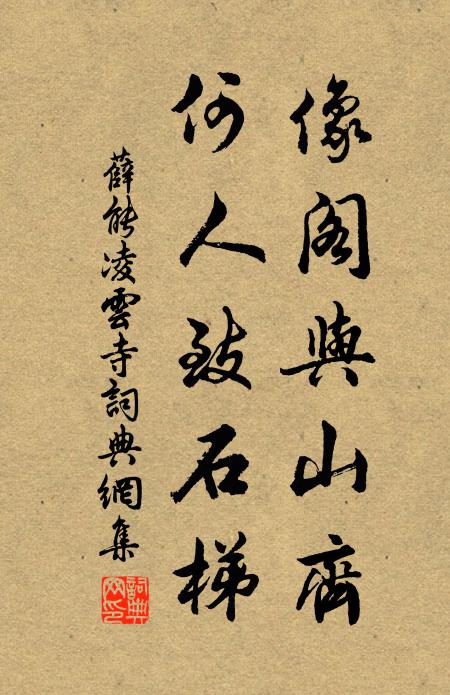 像閣與山齊
何人致石梯
薛能凌雲寺詞典網集
詞典
网印